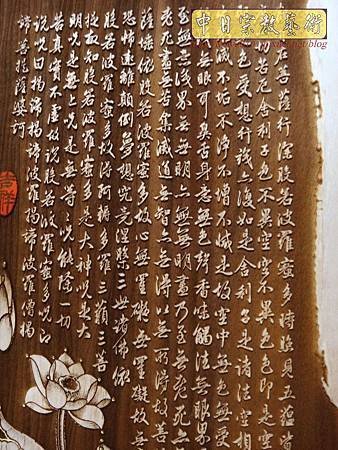 中日宗教藝術
在菩薩行深般若波羅蜜多時照見五蘊皆
苦厄舍利子色不異空空不異色色即是空
色受想行識亦復如是舍利子是諸法空相
滅不垢不淨不增不減是故空中無色無受
無眼耳鼻舌身意無色聲香味觸法無眼界
至無意識界無無明亦無無明盡乃至無老死亦無
老死盡無苦集滅道無智亦無得以無所得故菩
薩埵依般若波羅蜜多故心無罣礙無罣礙故無
恐怖遠離顛倒夢想究竟涅槃三世諸佛依
般若波羅蜜多故得阿耨多羅三藐三菩
提故知般若波羅蜜多是大神咒是大
明咒是無上咒是無等等咒能除一切
苦真實不虛故說般若波羅蜜多咒即
說咒曰揭諦揭諦波羅揭諦波羅僧揭
諦菩提薩婆訶